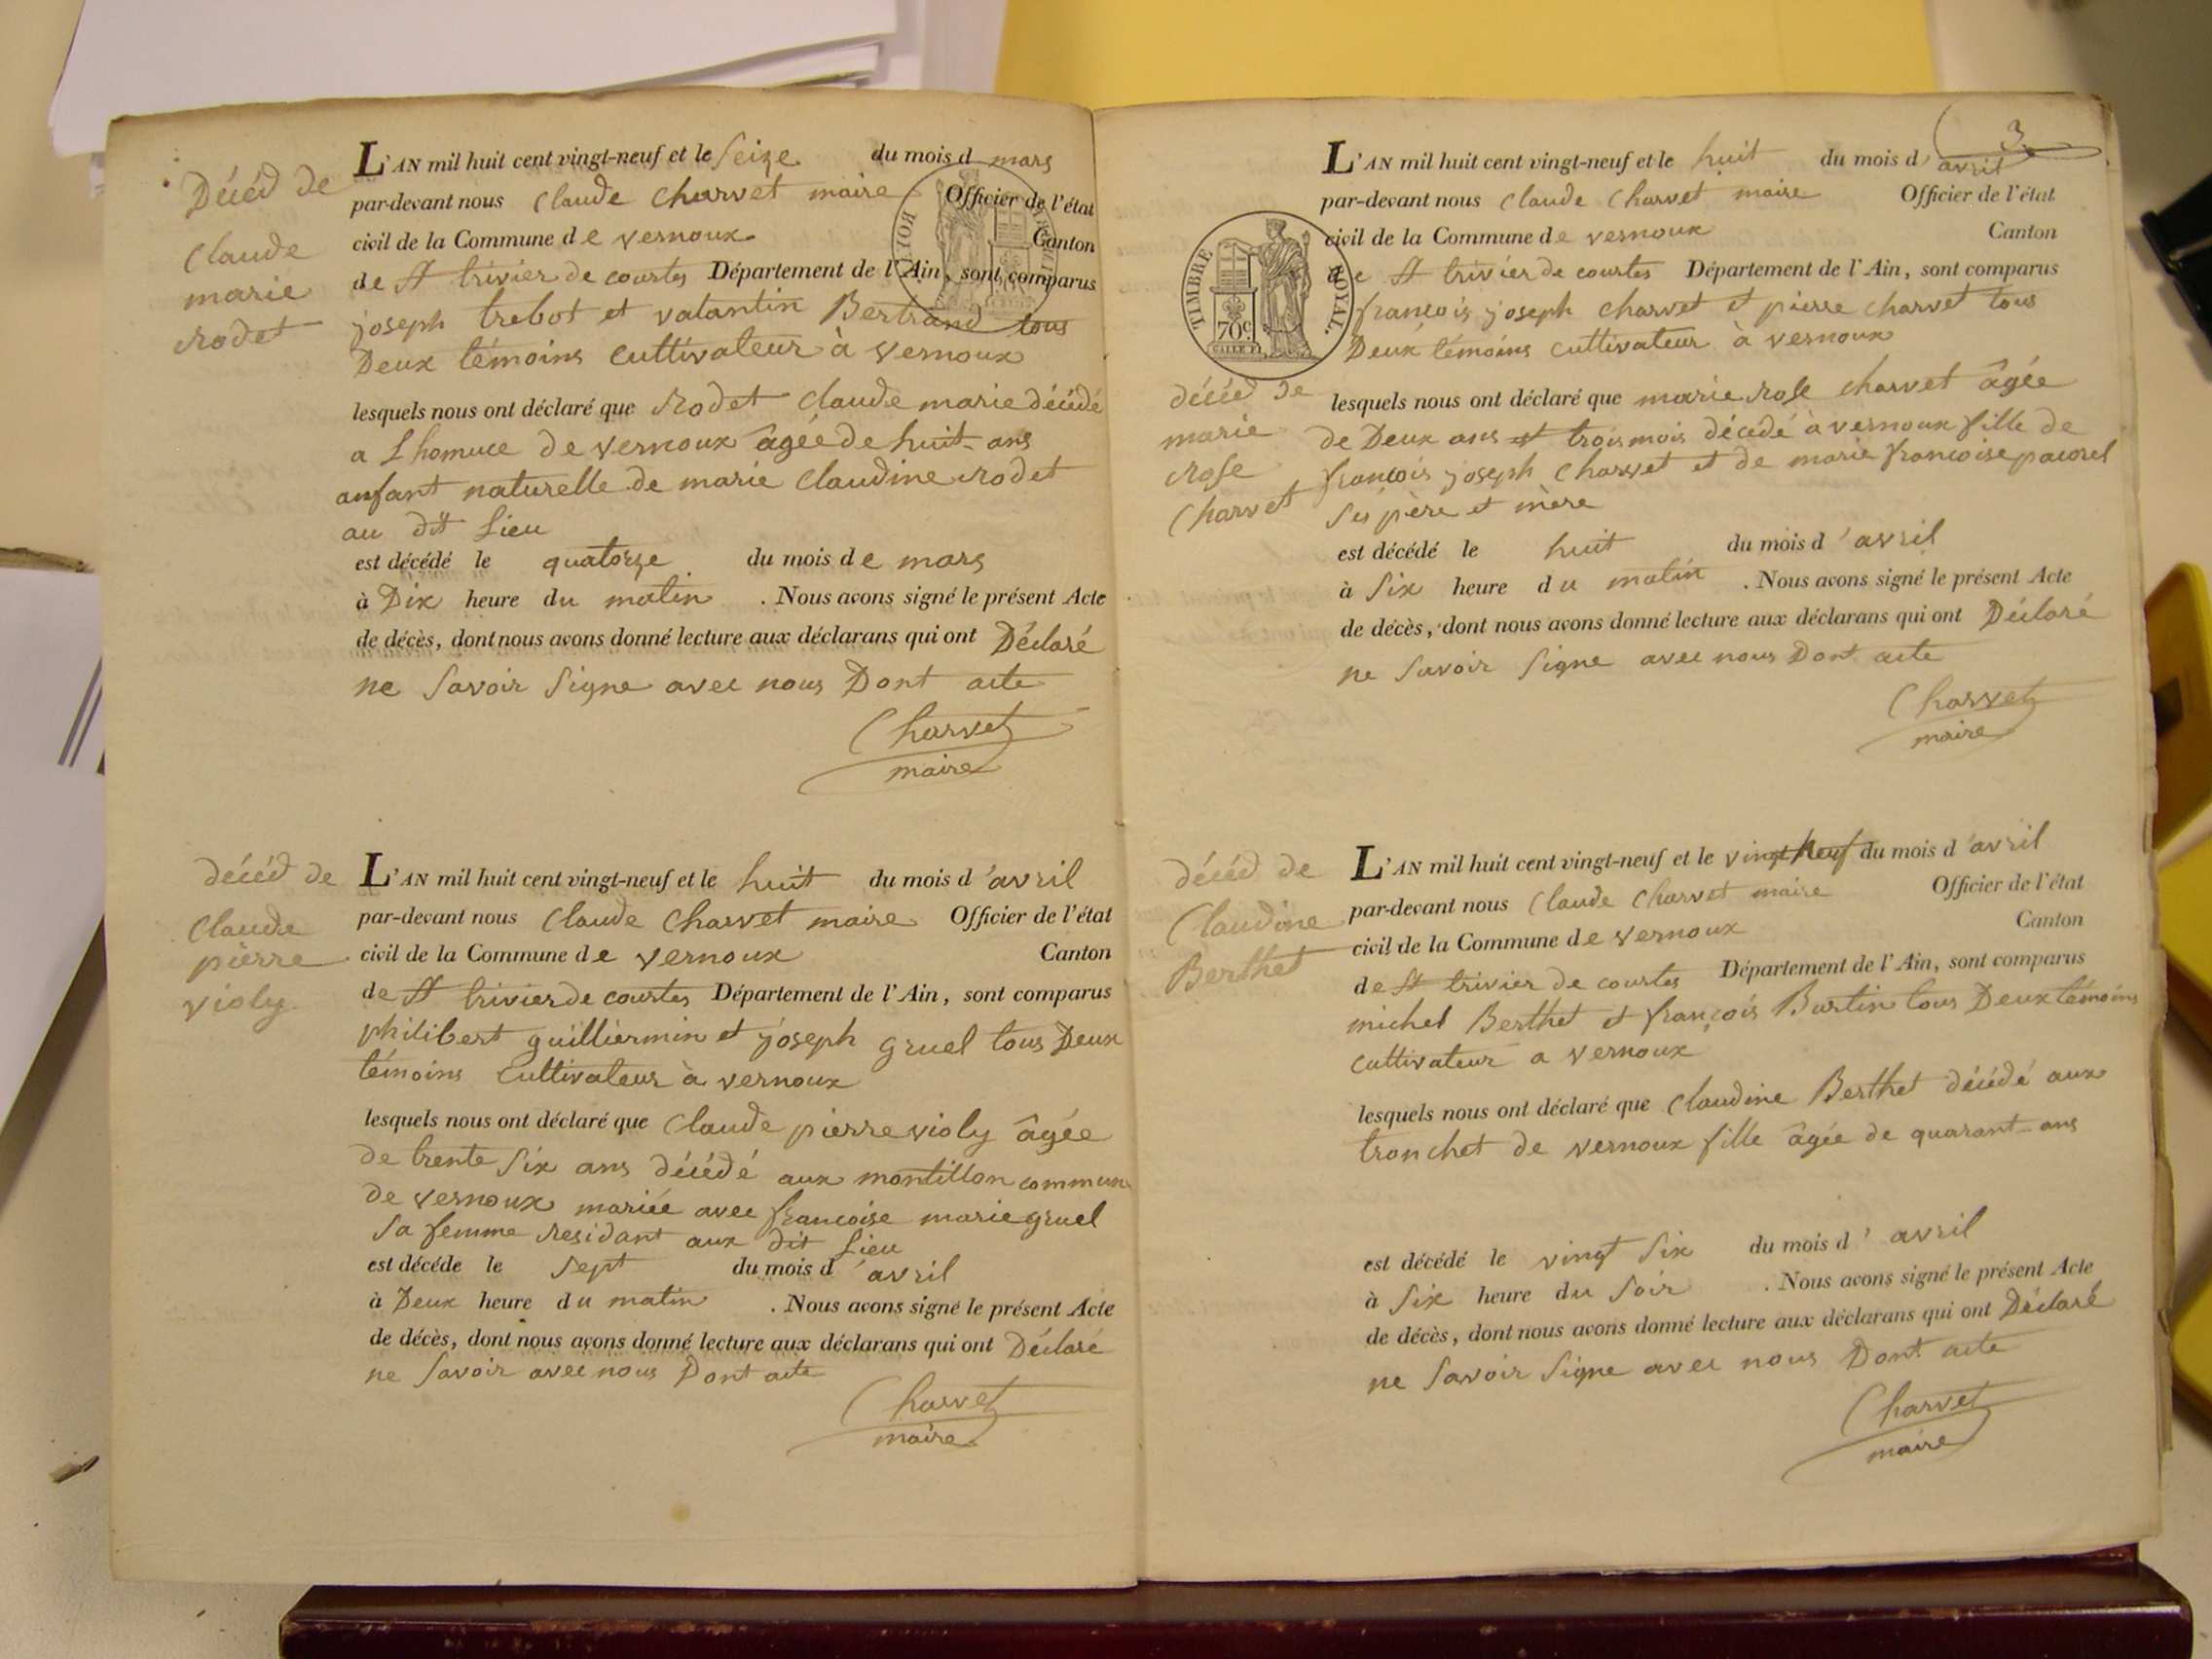 Décéd de
Claude
marie
rodet
L'AN mil huit cent vingt-neuf et le seize du mois d mars
par-devant nous Claude Charvet maire Officier de l'état
civil de la Commune de vernoux Canton
de St trivier de courtes Département de l'Ain, sont comparus
joseph trebot et valantin Bertrand tous
Deux témoins cultivateur à vernoux
lesquels nous ont déclaré que rodet claude marie décédé
a Lhomuce de vernoux âgée de huit ans
anfant naturelle de marie Claudine rodet
au dit Lieu
est décédé le quatorze du mois de mars
à Dix heure du matin . Nous avons signé le présent Acte
de décès, dont nous avons donné lecture aux déclarans qui ont Déclaré
ne savoir signe avec nous Dont acte
Charvet
maire
décéd de
Claude
pierre
violy
L'AN mil huit cent vingt-neuf et le huit du mois d'avril
par-devant nous Claude Charvet maire Officier de l'état
civil de la Commune de vernoux Canton
de St trivier de courtes Département de l'Ain, sont comparus
philibert guilliermin et joseph gruel tous Deux
témoins cultivateur à vernoux
lesquels nous ont déclaré que Claude pierre violy âgée
de trente six ans décédé aux montillon commune
de vernoux mariée avec francoise marie gruel
sa femme residant aux dit Lieu
est décéde le sept du mois d'avril
à Deux heure du matin . Nous avons signé le présent Acte
de décès, dont nous avons donné lecture aux déclarans qui ont Déclaré
ne savoir avec nous Dont acte
Charvet
maire
3
L'AN mil huit cent vingt-neuf et le huit du mois d'avril
par-devant nous Claude Charvet maire Officier de l'état
civil de la Commune de vernoux Canton
de St trivier de courtes Département de l'Ain, sont comparus
TIMBRE ROYAL.
70c
francois joseph charvet et pierre charvet tous
Deux témoins cultivateur à vernoux
décéd de
marie
rose
Charvet
lesquels nous ont déclaré que marie rose charvet âgée
de Deux ans et trois mois décédé à vernoux fille de
francois joseph Charvet et de marie francoise pacorel
ses père et mère
est décédé le huit du mois d'avril
à six heure du matin . Nous avons signé le présent Acte
de décès, dont nous avons donné lecture aux déclarans qui ont Déclaré
ne savoir signe avec nous Dont acte
Charvet
maire
décéd de
Claudine
Berthet
L'AN mil huit cent vingt-neuf et le vingt neuf du mois d'avril
par-devant nous Claude Charvet maire Officier de l'état
civil de la Commune de vernoux Canton
de St trivier de courtes Département de l'Ain, sont comparus
michel Berthet et françois Burtin tous Deux témoins
cultivateur a vernoux
lesquels nous ont déclaré que Claudine Berthet décédé aux
tronchet de vernoux fille âgée de quarant ans
est décédé le vingt six du mois d'avril
à six heure du soir . Nous avons signé le présent Acte
de décès, dont nous avons donné lecture aux déclarans qui ont Déclaré
ne savoir signe avec nous Dont acte
Charvet
maire